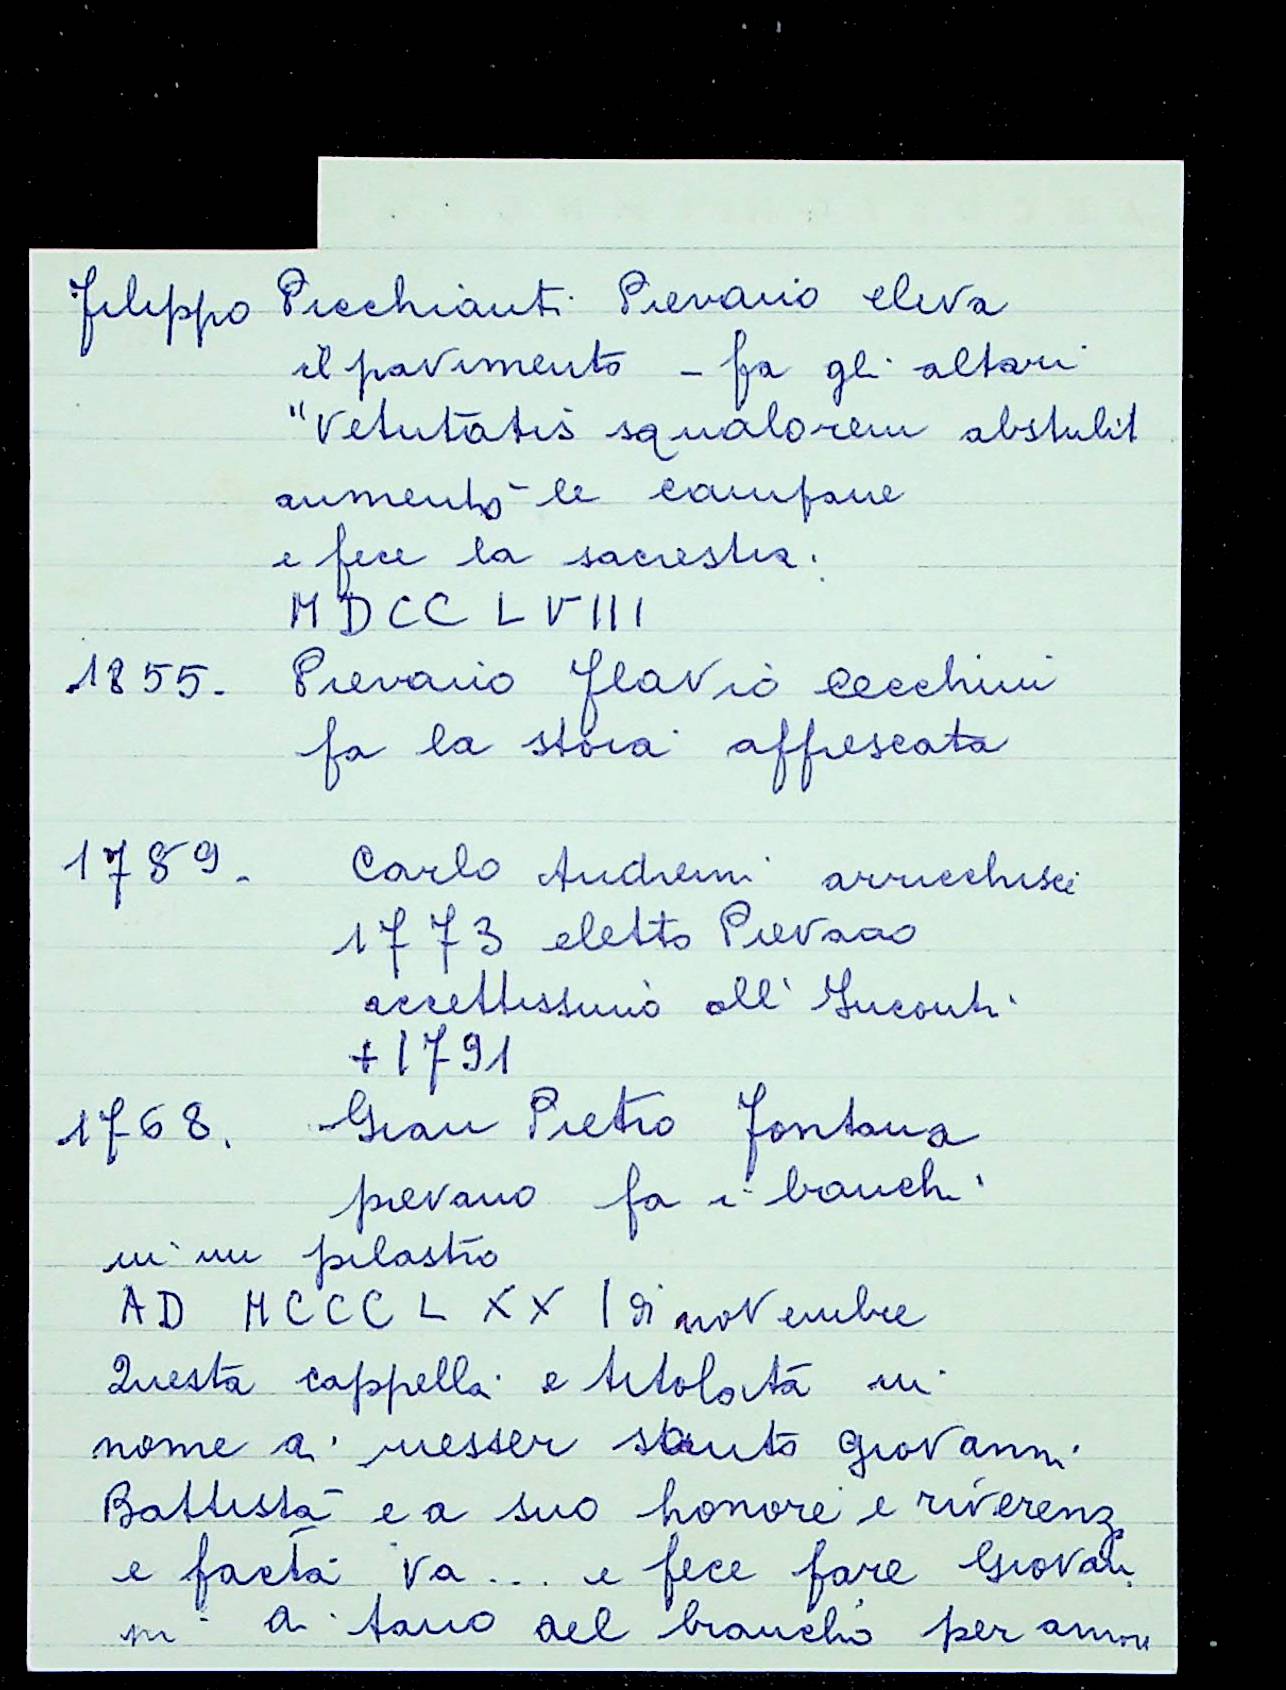 Filippo Picchianti Pievano eleva
il pavimento - fa gli altari
"Vetutatis squalorem abstulit
aumentò le campane
e fece la sacrestia.
MDCCLVIII
1855. Pievano Flavio Cecchini
fa la stoia affrescata
1789. Carlo Andreini arricchisci
1773 eletto Pievano
accettissimo all'
+1791
1768. Gian Pietro Fontana
pievano fa i banchi
in un pilastro
AD MCCCLXX I di novembre
Questa cappella e titolata in
nome di messer santo Giovanni
Battista e a suo honore e riverenz
e facta va... e fece fare Giovan
ni di tano del biancho per amore